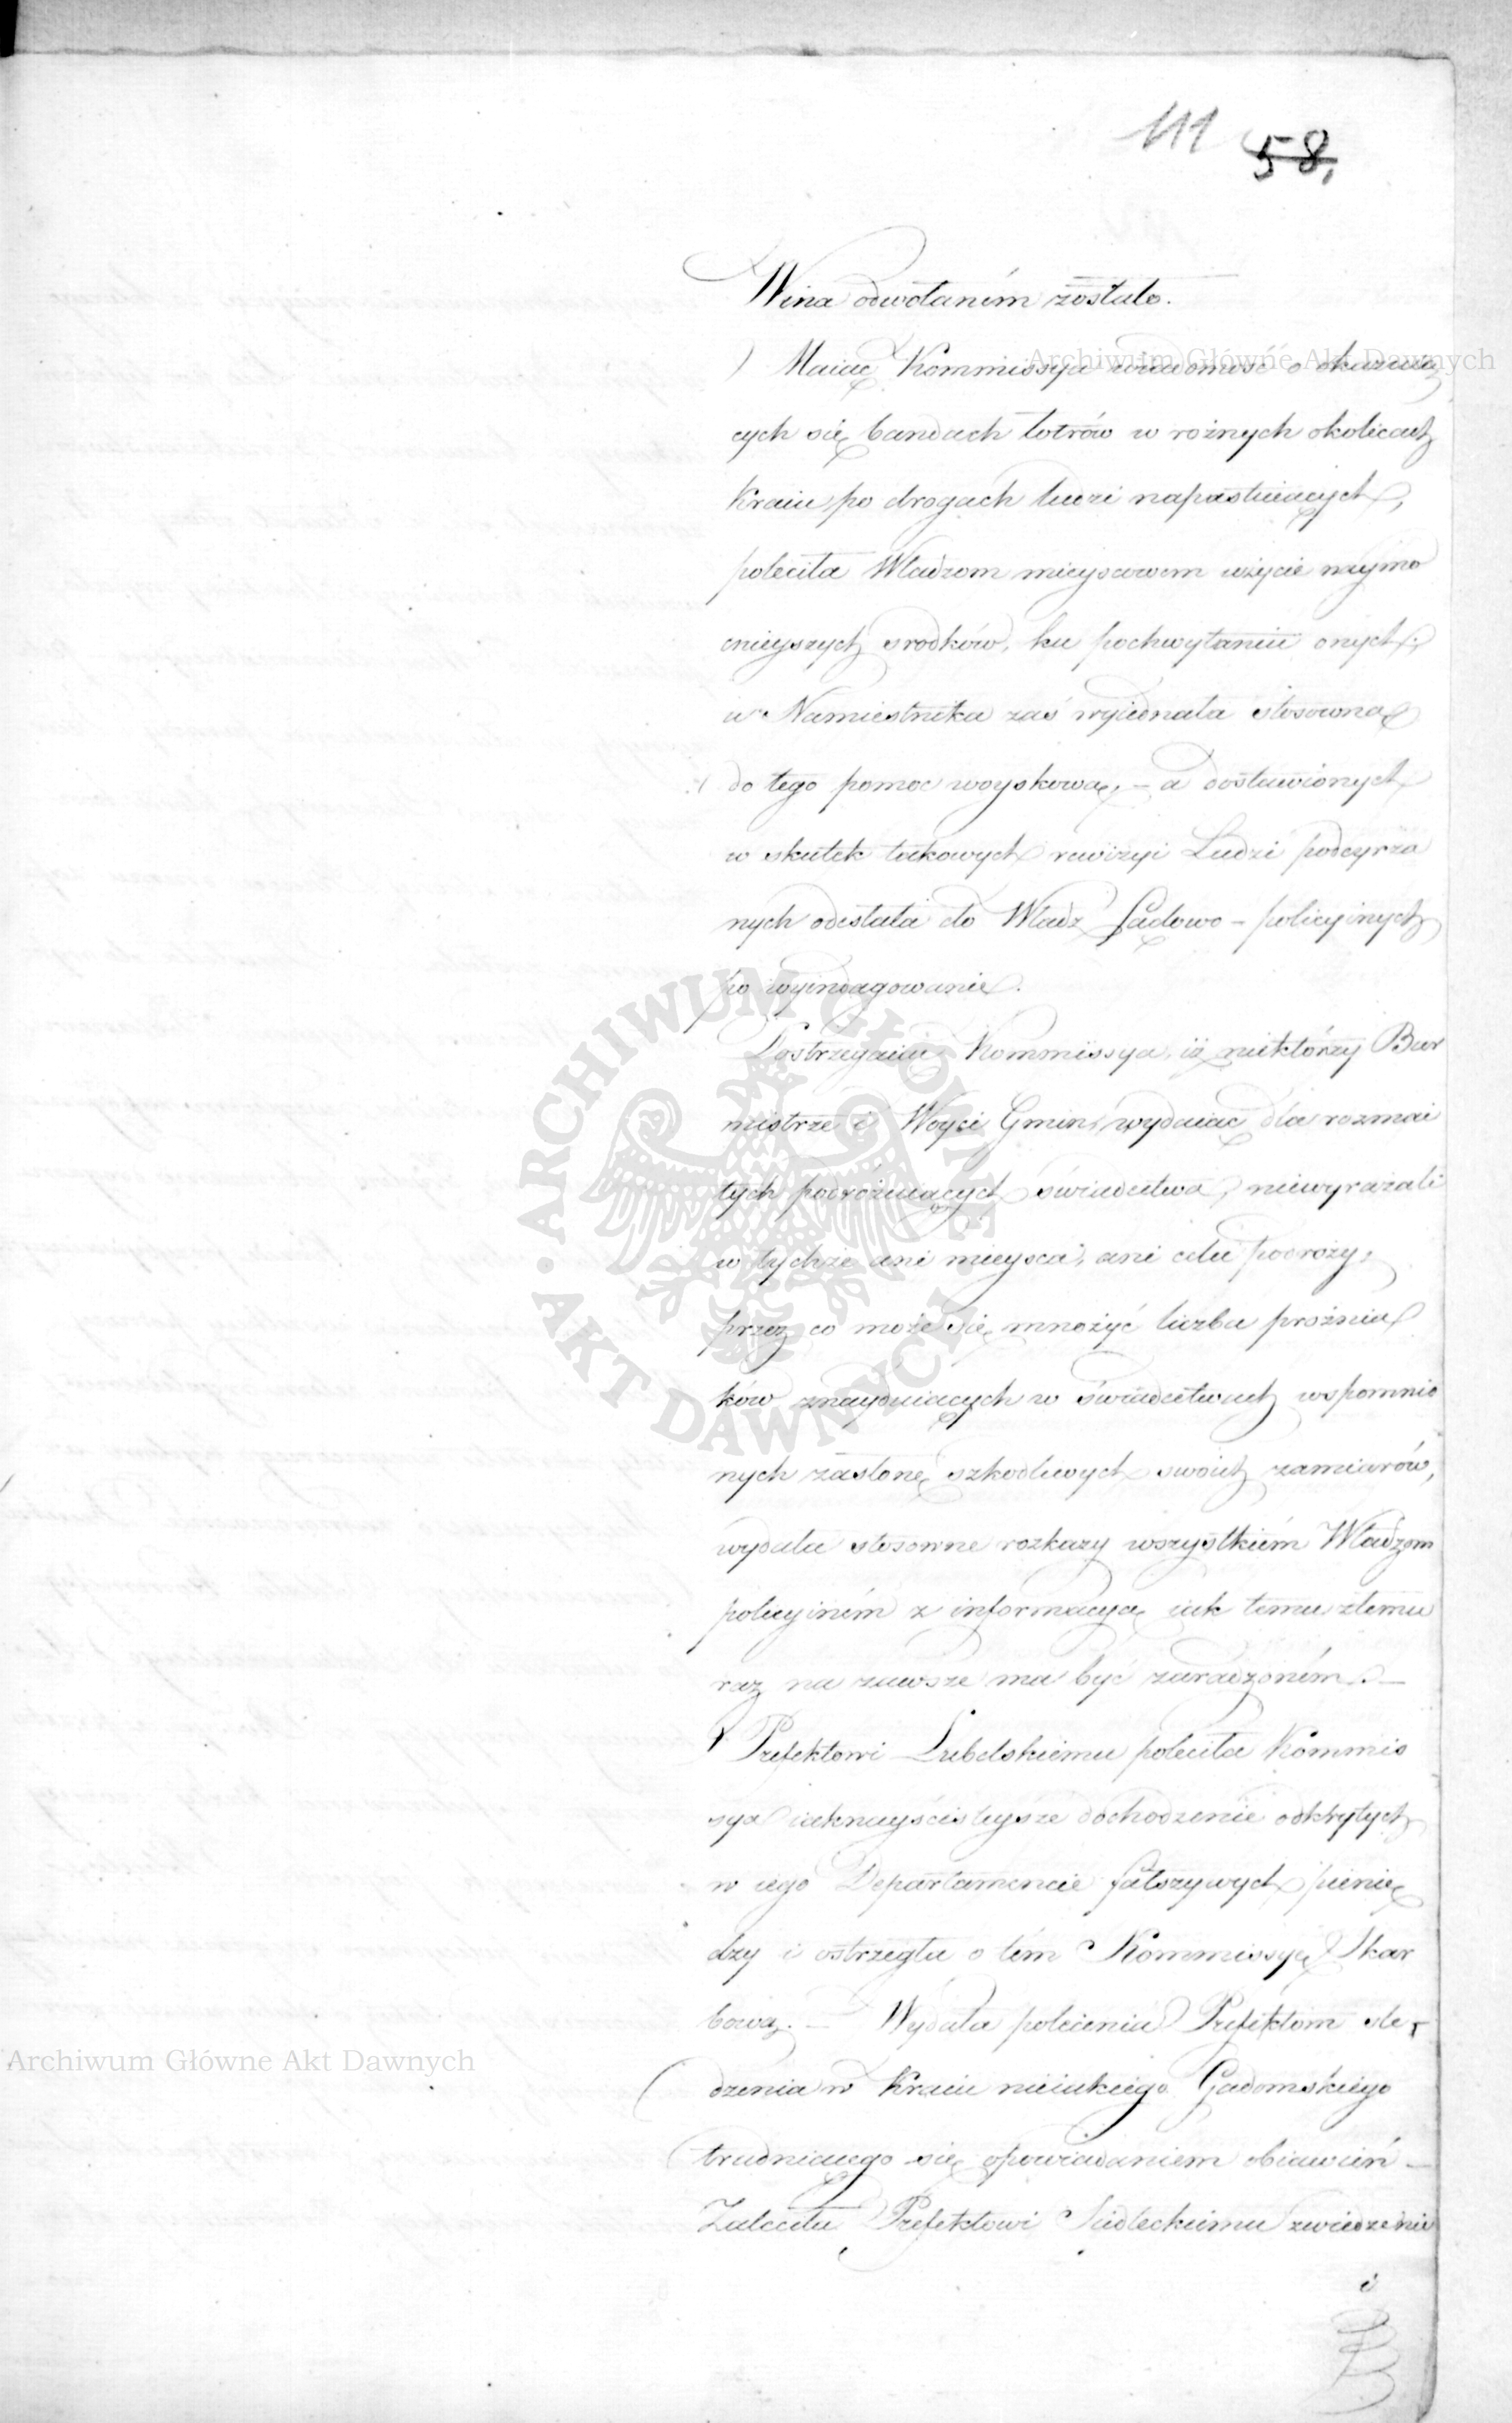 111 58,
Wina odwołaném zostało.
Maiąc Kommissya wiadomość o okazuią
Archiwum Główne Akt Dawnych
cych się bandach łotrów w rożnych okolicach
Kraiu po drogach ludzi napastuiących,
poleciła Władzom mieyscowem użycie naymo
cnieyszych srodków, ku pochwytaniu onych;
u Namiestnika zaś wyiednała stosowną
do tego pomoc woyskową, – a dostawionych
w skutek takowych rewizyi Ludzi podeyrza
nych odesłała do Władz Sądowo – policyinych
po wyindagowanie.
Dostrzegaiąc Kommissya, iż niektórzy Bur
mistrze i Woyci Gmin, wydaiąc dla rozmai
tych podróżuiących świadectwa, niewyrażali
w tychże ani mieysca, ani celu podroży,
przez co może się mnożyć liczba prożnia
ków znayduiących w świadectwach wspomnio
nych zasłonę szkodliwych swoich zamiarów,
wydała stosowne rozkazy wszystkiém Władzom
policyiném z informacyą iak temu złemu
raz na zawsze ma być zaradzoném. –
Prefektowi Lubelskiemu poleciła Kommis
sya iaknayściśleysze dochodzenie odkrytych
w iego Departamencie fałszywych pienię
dzy i ostrzegła o tém Kommissyę Skar
bową. – Wydała polecenia Prefektom śle
Archiwum Główne Akt Dawnych
dzenia w Kraiu nieiakiego Gadomskiego
trudniącego się opowiadaniem obiawień –
Zaleciła Prefektowi Siedleckiemu zwiedzenie
i
ARCHIWUM GŁÓWNE • AKT DAWNYCH •